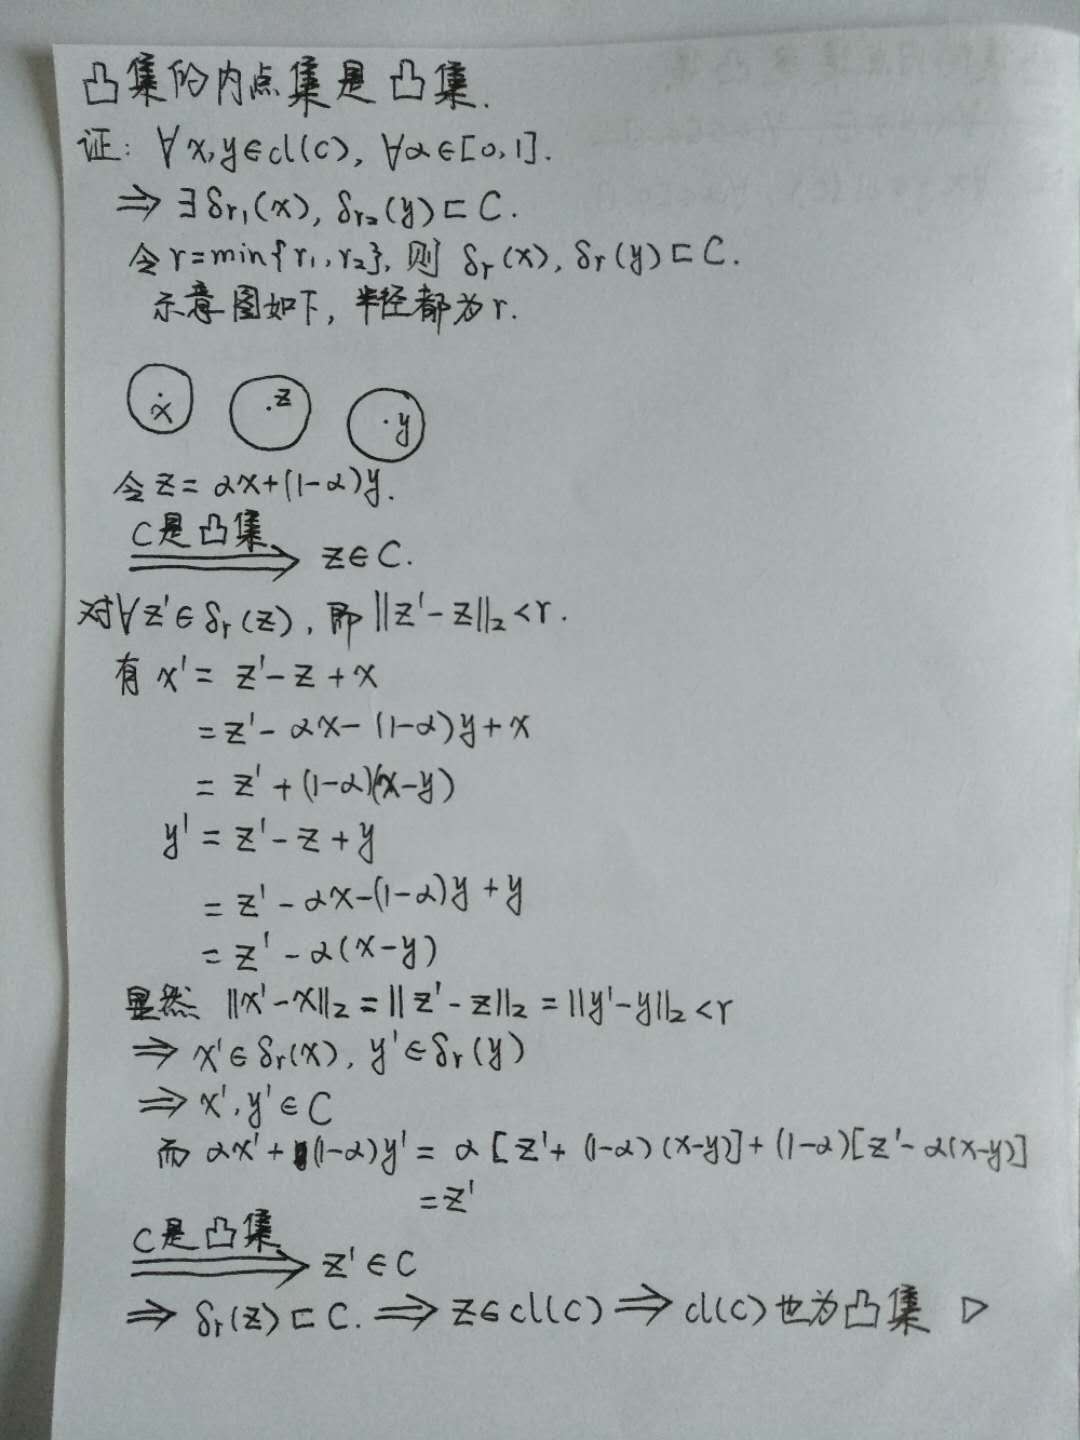 凸集的内点集是凸集.
证: ∀x,y∈cl(C), ∀α∈[0,1].
⇒ ∃δr₁(x), δr₂(y)⊏C.
令r=min{r₁,r₂}, 则 δr(x), δr(y)⊏C.
示意图如下, 半径都为r.
x z y
令z=αx+(1-α)y.
C是凸集
⇒ z∈C.
对∀z'∈δr(z), 即||z'-z||₂<r.
有 x'= z'-z+x
= z'-αx-(1-α)y+x
= z'+(1-α)(x-y)
y'= z'-z+y
= z'-αx-(1-α)y+y
= z'-α(x-y)
显然 ||x'-x||₂=||z'-z||₂=||y'-y||₂<r
⇒ x'∈δr(x), y'∈δr(y)
⇒ x',y'∈C
而 αx'+(1-α)y'= α[z'+(1-α)(x-y)]+(1-α)[z'-α(x-y)]
=z'
C是凸集
⇒ z'∈C
⇒ δr(z)⊏C. ⇒ z∈cl(C) ⇒ cl(C)也为凸集 ▷